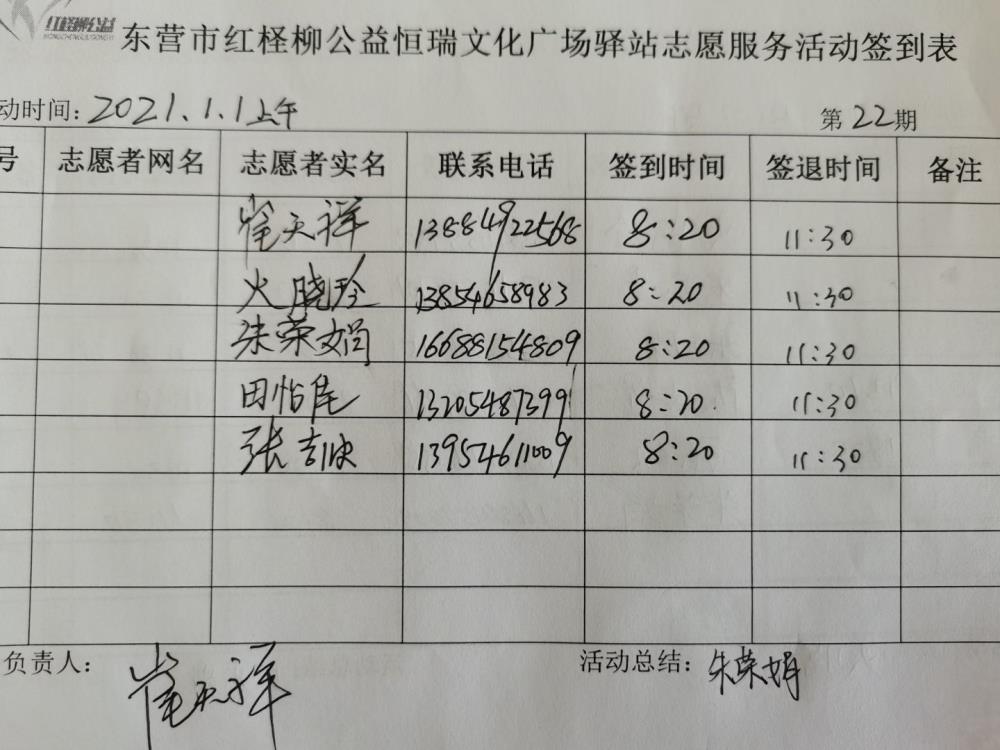 红柽柳公益
东营市红柽柳公益恒瑞文化广场驿站志愿服务活动签到表
动时间：2021.1.1上午 第22期
号 志愿者网名 志愿者实名 联系电话 签到时间 签退时间 备注
崔天祥 13884922568 8:20 11:30
火晓玲 13854658983 8:20 11:30
朱荣娟 16688154809 8:20 11:30
田怡 13205487399 8:20 11:30
张吉 13954611009 8:20 11:30
负责人：崔天祥 活动总结：朱荣娟